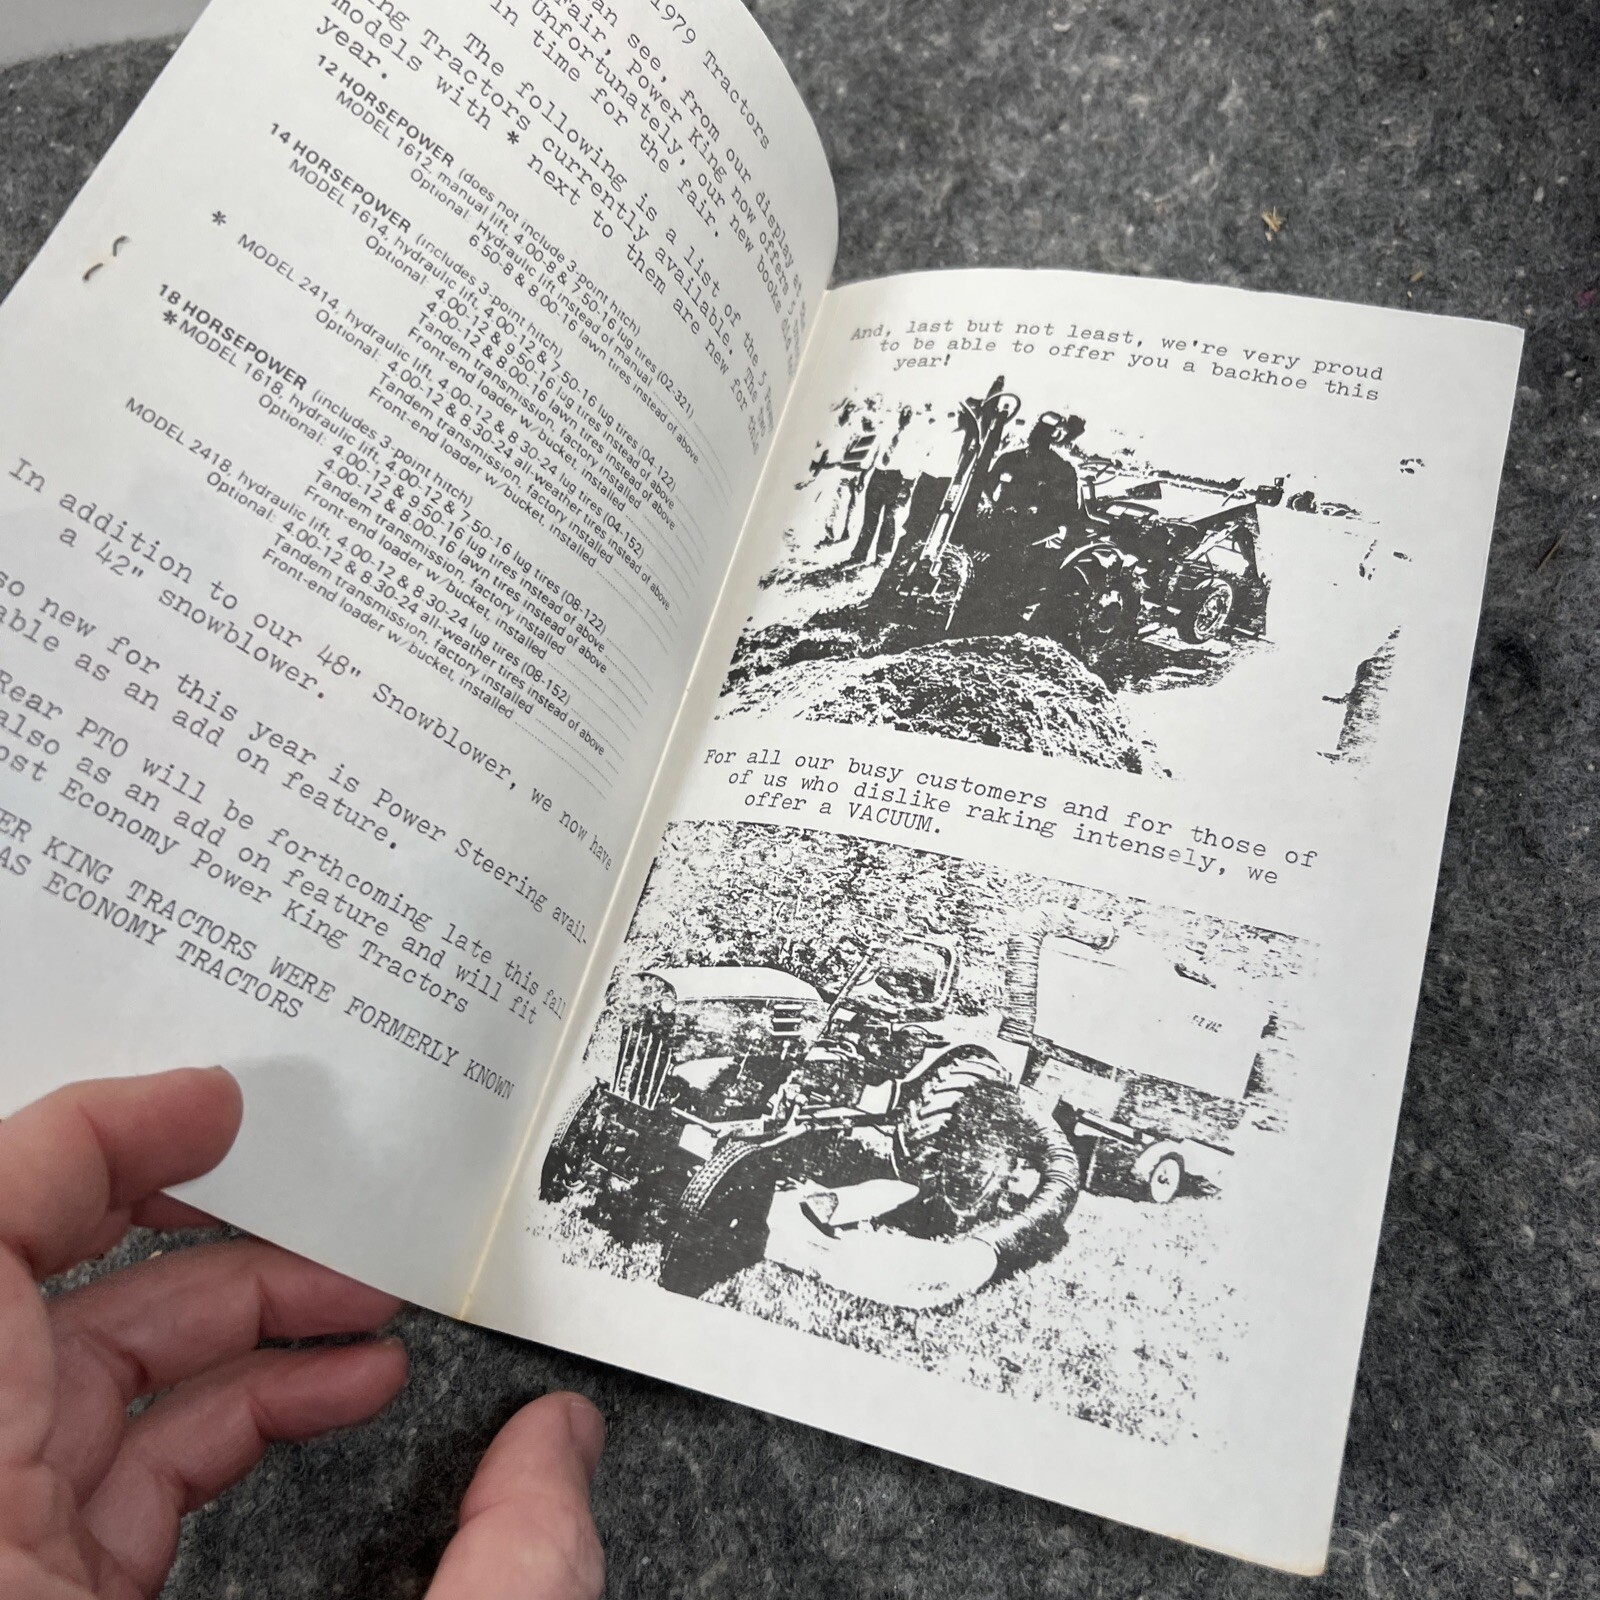 1979 Tractors
an see, from our display at the
Fair, Power King now offers 5
Unfortunately, our new books did
in time for the fair.
The following is a list of the 5 Power
ing Tractors currently available. The two
models with * next to them are new for this
year.
12 HORSEPOWER (does not include 3-point hitch)
MODEL 1612, manual lift, 4.00-8 & 7.50-16 lug tires (02-321)
Optional: Hydraulic lift instead of manual
6.50-8 & 8.00-16 lawn tires instead of above
14 HORSEPOWER (includes 3-point hitch)
MODEL 1614, hydraulic lift, 4.00-12 & 7.50-16 lug tires (04-122)
Optional: 4.00-12 & 9.50-16 lug tires instead of above
4.00-12 & 8.00-16 lawn tires instead of above
Tandem transmission, factory installed
Front-end loader w/bucket, installed
* MODEL 2414, hydraulic lift, 4.00-12 & 8.30-24 lug tires (04-152)
Optional: 4.00-12 & 8.30-24 all-weather tires instead of above
Tandem transmission, factory installed
Front-end loader w/bucket, installed
18 HORSEPOWER (includes 3-point hitch)
*MODEL 1618, hydraulic lift, 4.00-12 & 7.50-16 lug tires (08-122)
Optional: 4.00-12 & 9.50-16 lug tires instead of above
4.00-12 & 8.00-16 lawn tires instead of above
Tandem transmission, factory installed
Front-end loader w/bucket, installed
MODEL 2418, hydraulic lift, 4.00-12 & 8.30-24 lug tires (08-152)
Optional: 4.00-12 & 8.30-24 all-weather tires instead of above
Tandem transmission, factory installed
Front-end loader w/bucket, installed
In addition to our 48" Snowblower, we now have
a 42" snowblower.
so new for this year is Power Steering avail-
able as an add on feature.
Rear PTO will be forthcoming late this fall
also as an add on feature and will fit
ost Economy Power King Tractors
ER KING TRACTORS WERE FORMERLY KNOWN
AS ECONOMY TRACTORS
And, last but not least, we're very proud
to be able to offer you a backhoe this
year!
For all our busy customers and for those of
of us who dislike raking intensely, we
offer a VACUUM.